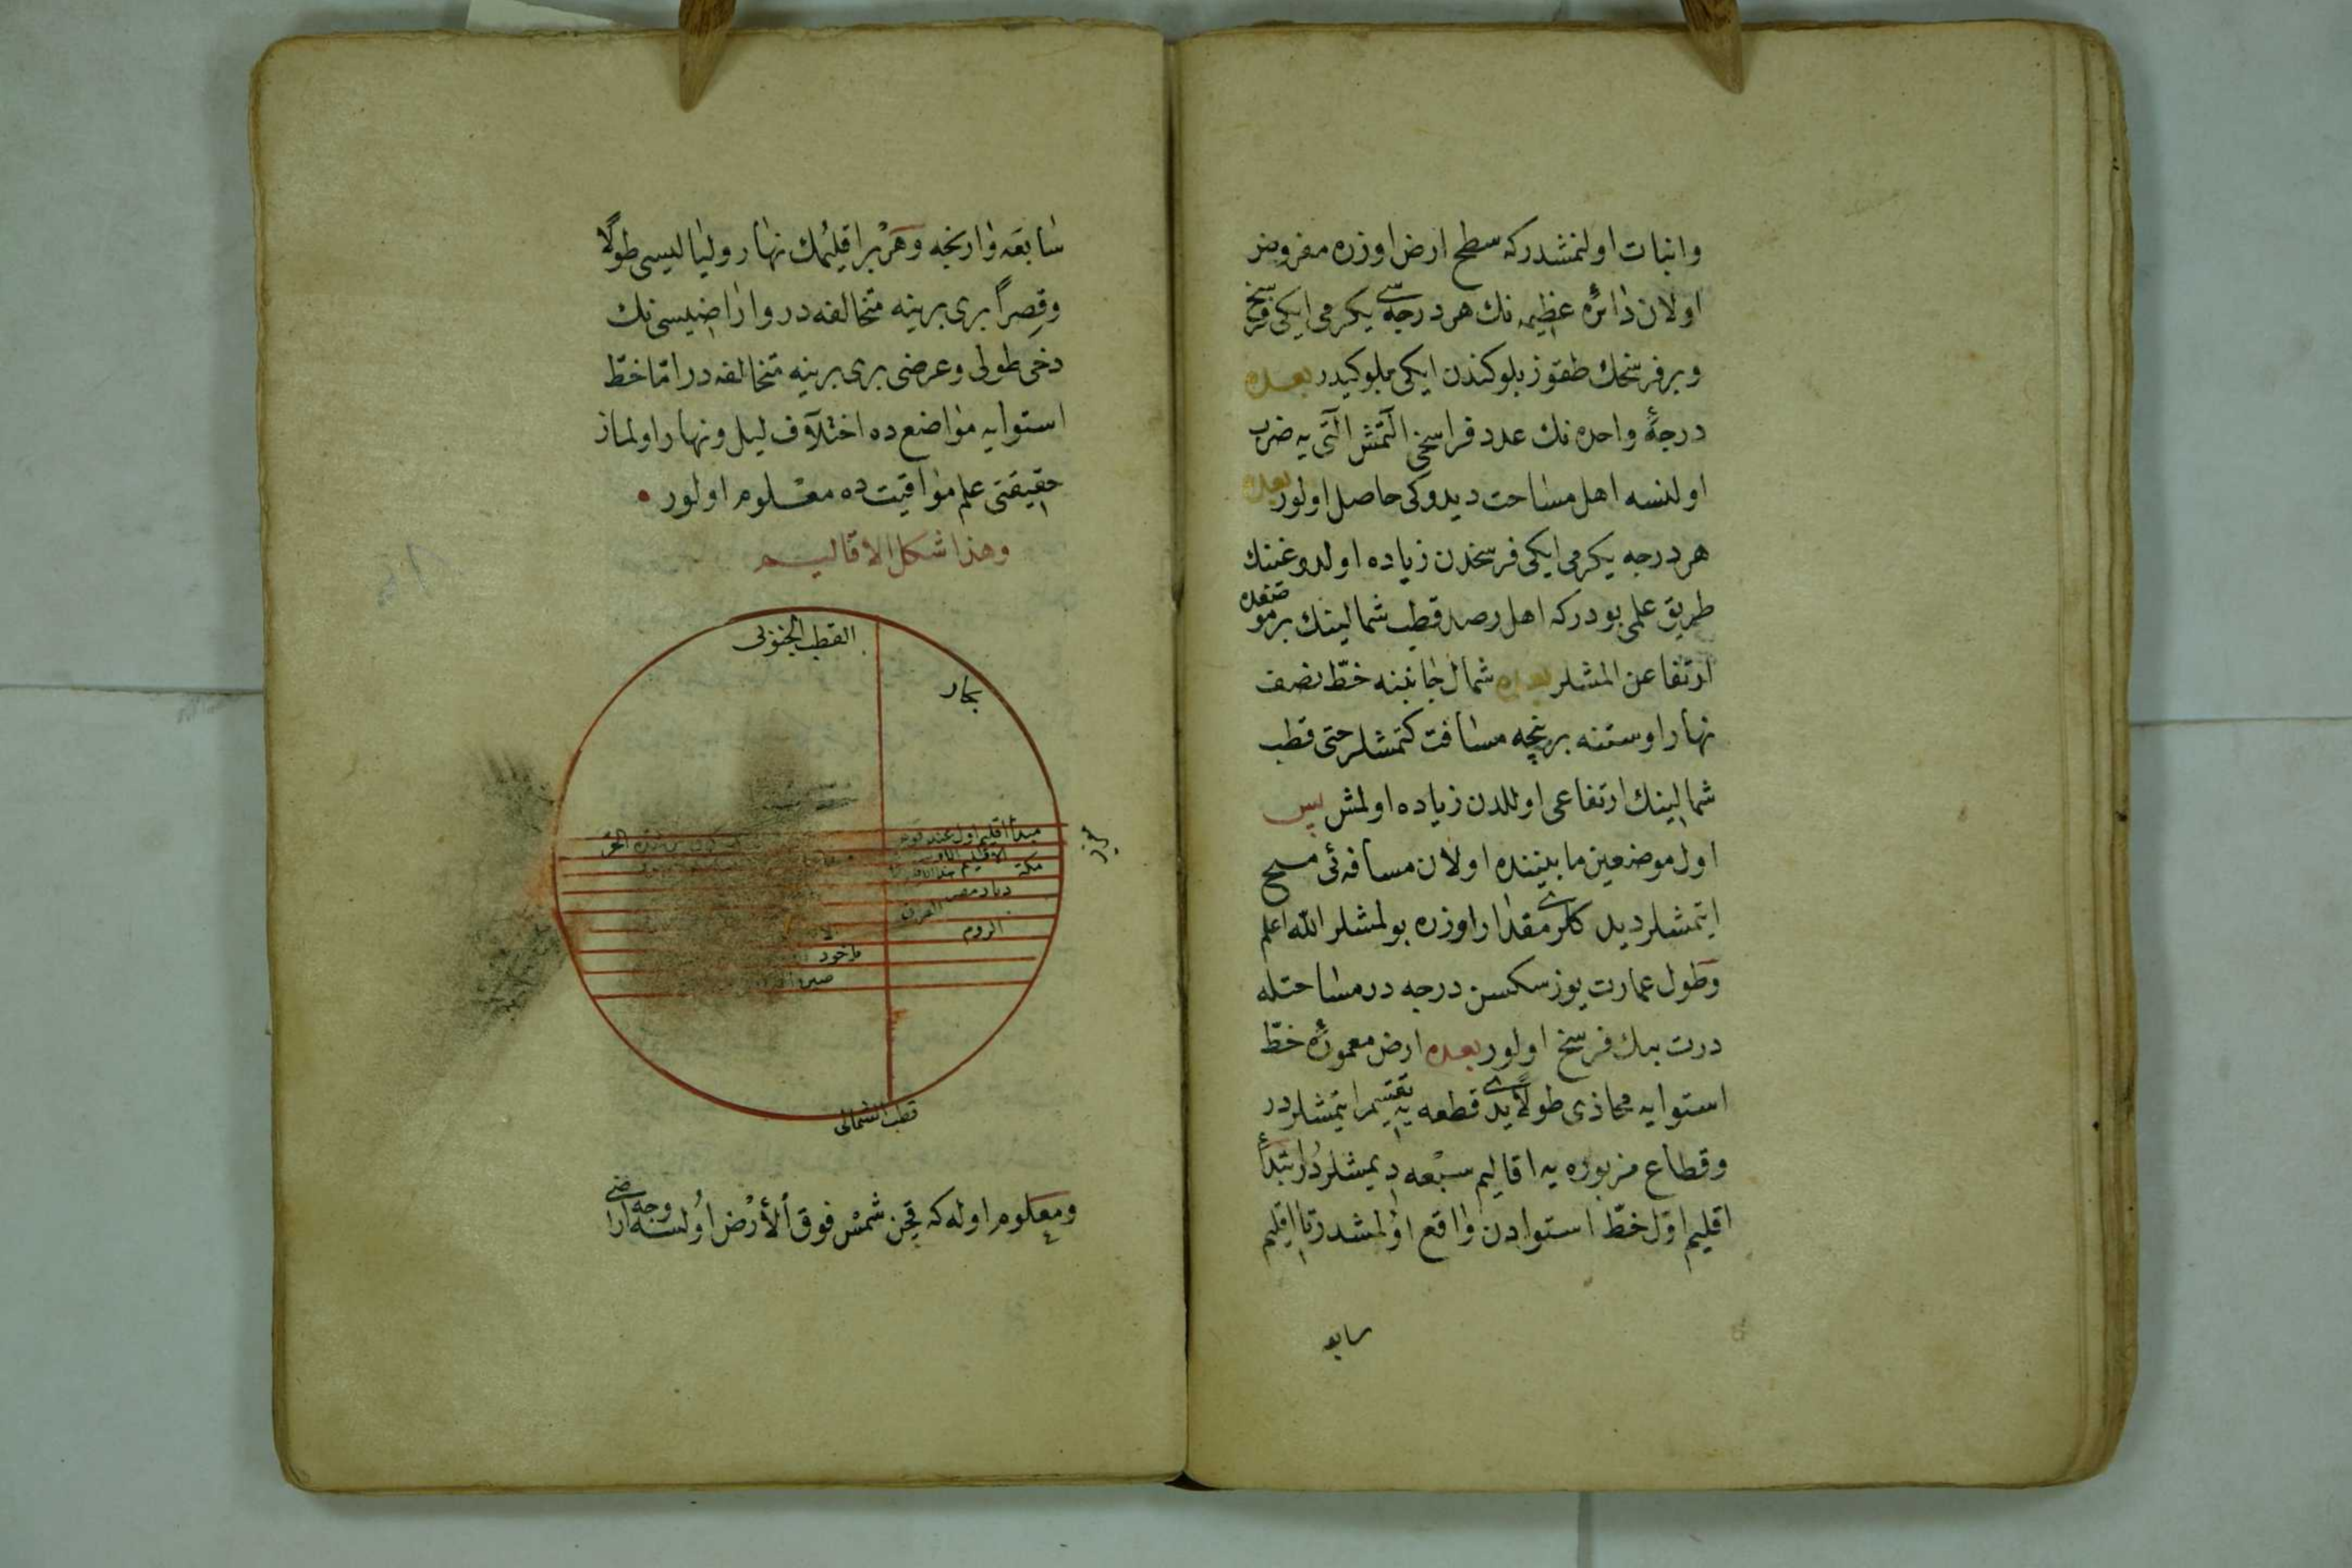 واثبات اولنمشدركه سطح ارض اوزره مفروض
اولان دائرۀ عظیمه نك هر درجه سی یكرمی ایكی فرسخ
وبر فرسخك طقوز بلوكندن ایكی بلوكیدر بعده
درجۀ واحده نك عدد فراسخی التمش التی یه ضرب
اولنسه اهل مساحت دیدوكی حاصل اولور بعده
هر درجه یكرمی ایكی فرسخدن زیاده اولدوغنك
طریق علمی بودركه اهل رصد قطب شمالینك بر موضعده
ارتفاعن المشلر بعده شمال جانبنه خطّ نصف
نهار اوستنه بر نچه مسافت كتمشلر حتی قطب
شمالینك ارتفاعی اوللدن زیاده اولمش پس
اول موضعین مابیننده اولان مسافه ئی مسح
ایتمشلر دیدكلری مقدار اوزره بولمشلر الله اعلم
وطول عمارت یوز سكسن درجه در مساحتله
درت بیك فرسخ اولور بعده ارض معمورۀ خطّ
استوایه محاذی طولًا یدی قطعه یه تقسیم ایتمشلردر
وقطاع مزبوره یه اقالیم سبْعه دیمشلردر ابتدأ
اقلیم اوّل خطّ استوادن واقع اولمشدر تا اقلیم
سابعه
سابعه وارنجه وهَرْ بر اقلیمك نهار ولیالیسی طولًا
وقِصرًا بری برینه متخالفه در واراضیسی نك
دخی طولی وعرضی بری برینه متخالفه در امّا خطّ
استوایه مواضع ده اختلاف لیل ونهار اولماز
حقیقتی علم مواقیت ده معْلوم اولور
وهذا شكل الاقالیم
القطب الجنوبی
بحار
مبدأ اقلیم اول عند
الاقلیم
مكة
دیار مصر
الروم
ماخود
قطب الشمالی
ومعلوم اوله كه قچن شمسْ فوق الأرْض اولسه وجه اراضی